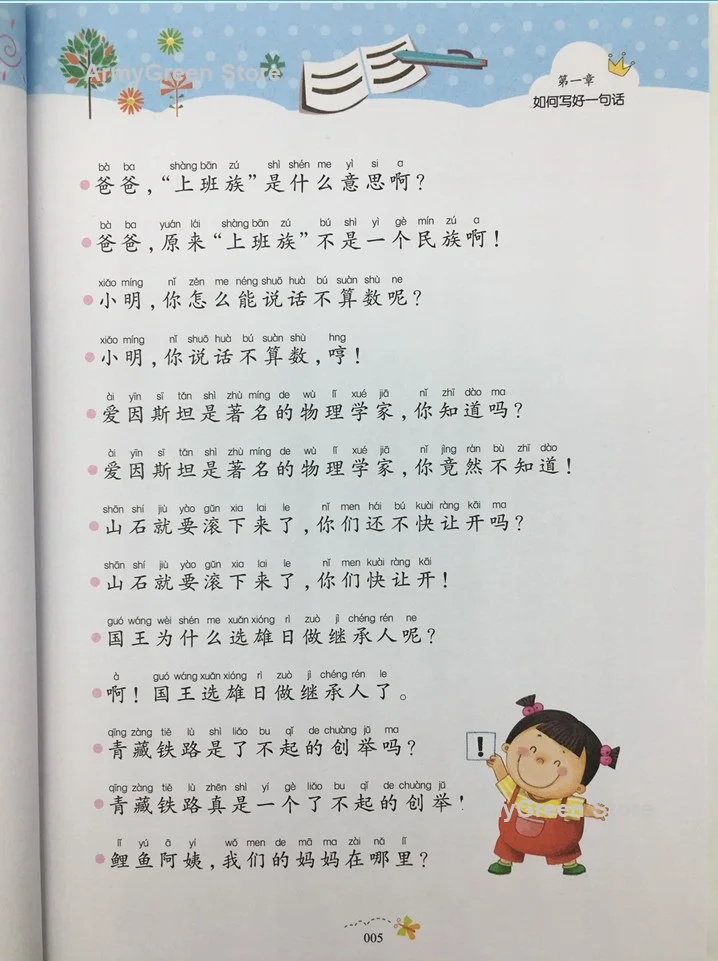 ArmyGreen Store
第一章
如何写好一句话
bà ba shàng bān zú shì shén me yì si a
爸爸，“上班族”是什么意思啊？
bà ba yuán lái shàng bān zú bú shì yì gè mín zú a
爸爸，原来“上班族”不是一个民族啊！
xiǎo míng nǐ zěn me néng shuō huà bú suàn shù ne
小明，你怎么能说话不算数呢？
xiǎo míng nǐ shuō huà bú suàn shù hng
小明，你说话不算数，哼！
ài yīn sī tǎn shì zhù míng de wù lǐ xué jiā nǐ zhī dào ma
爱因斯坦是著名的物理学家，你知道吗？
ài yīn sī tǎn shì zhù míng de wù lǐ xué jiā nǐ jìng rán bù zhī dào
爱因斯坦是著名的物理学家，你竟然不知道！
shān shí jiù yào gǔn xia lai le nǐ men hái bú kuài ràng kāi ma
山石就要滚下来了，你们还不快让开吗？
shān shí jiù yào gǔn xia lai le nǐ men kuài ràng kāi
山石就要滚下来了，你们快让开！
guó wáng wèi shén me xuǎn xióng rì zuò jì chéng rén ne
国王为什么选雄日做继承人呢？
à guó wáng xuǎn xióng rì zuò jì chéng rén le
啊！国王选雄日做继承人了。
qīng zàng tiě lù shì liǎo bu qǐ de chuàng jǔ ma
青藏铁路是了不起的创举吗？
qīng zàng tiě lù zhēn shì yí gè liǎo bu qǐ de chuàng jǔ
青藏铁路真是一个了不起的创举！
!
ArmyGreen Store
lǐ yú ā yí wǒ men de mā ma zài nǎ lǐ
鲤鱼阿姨，我们的妈妈在哪里？
005